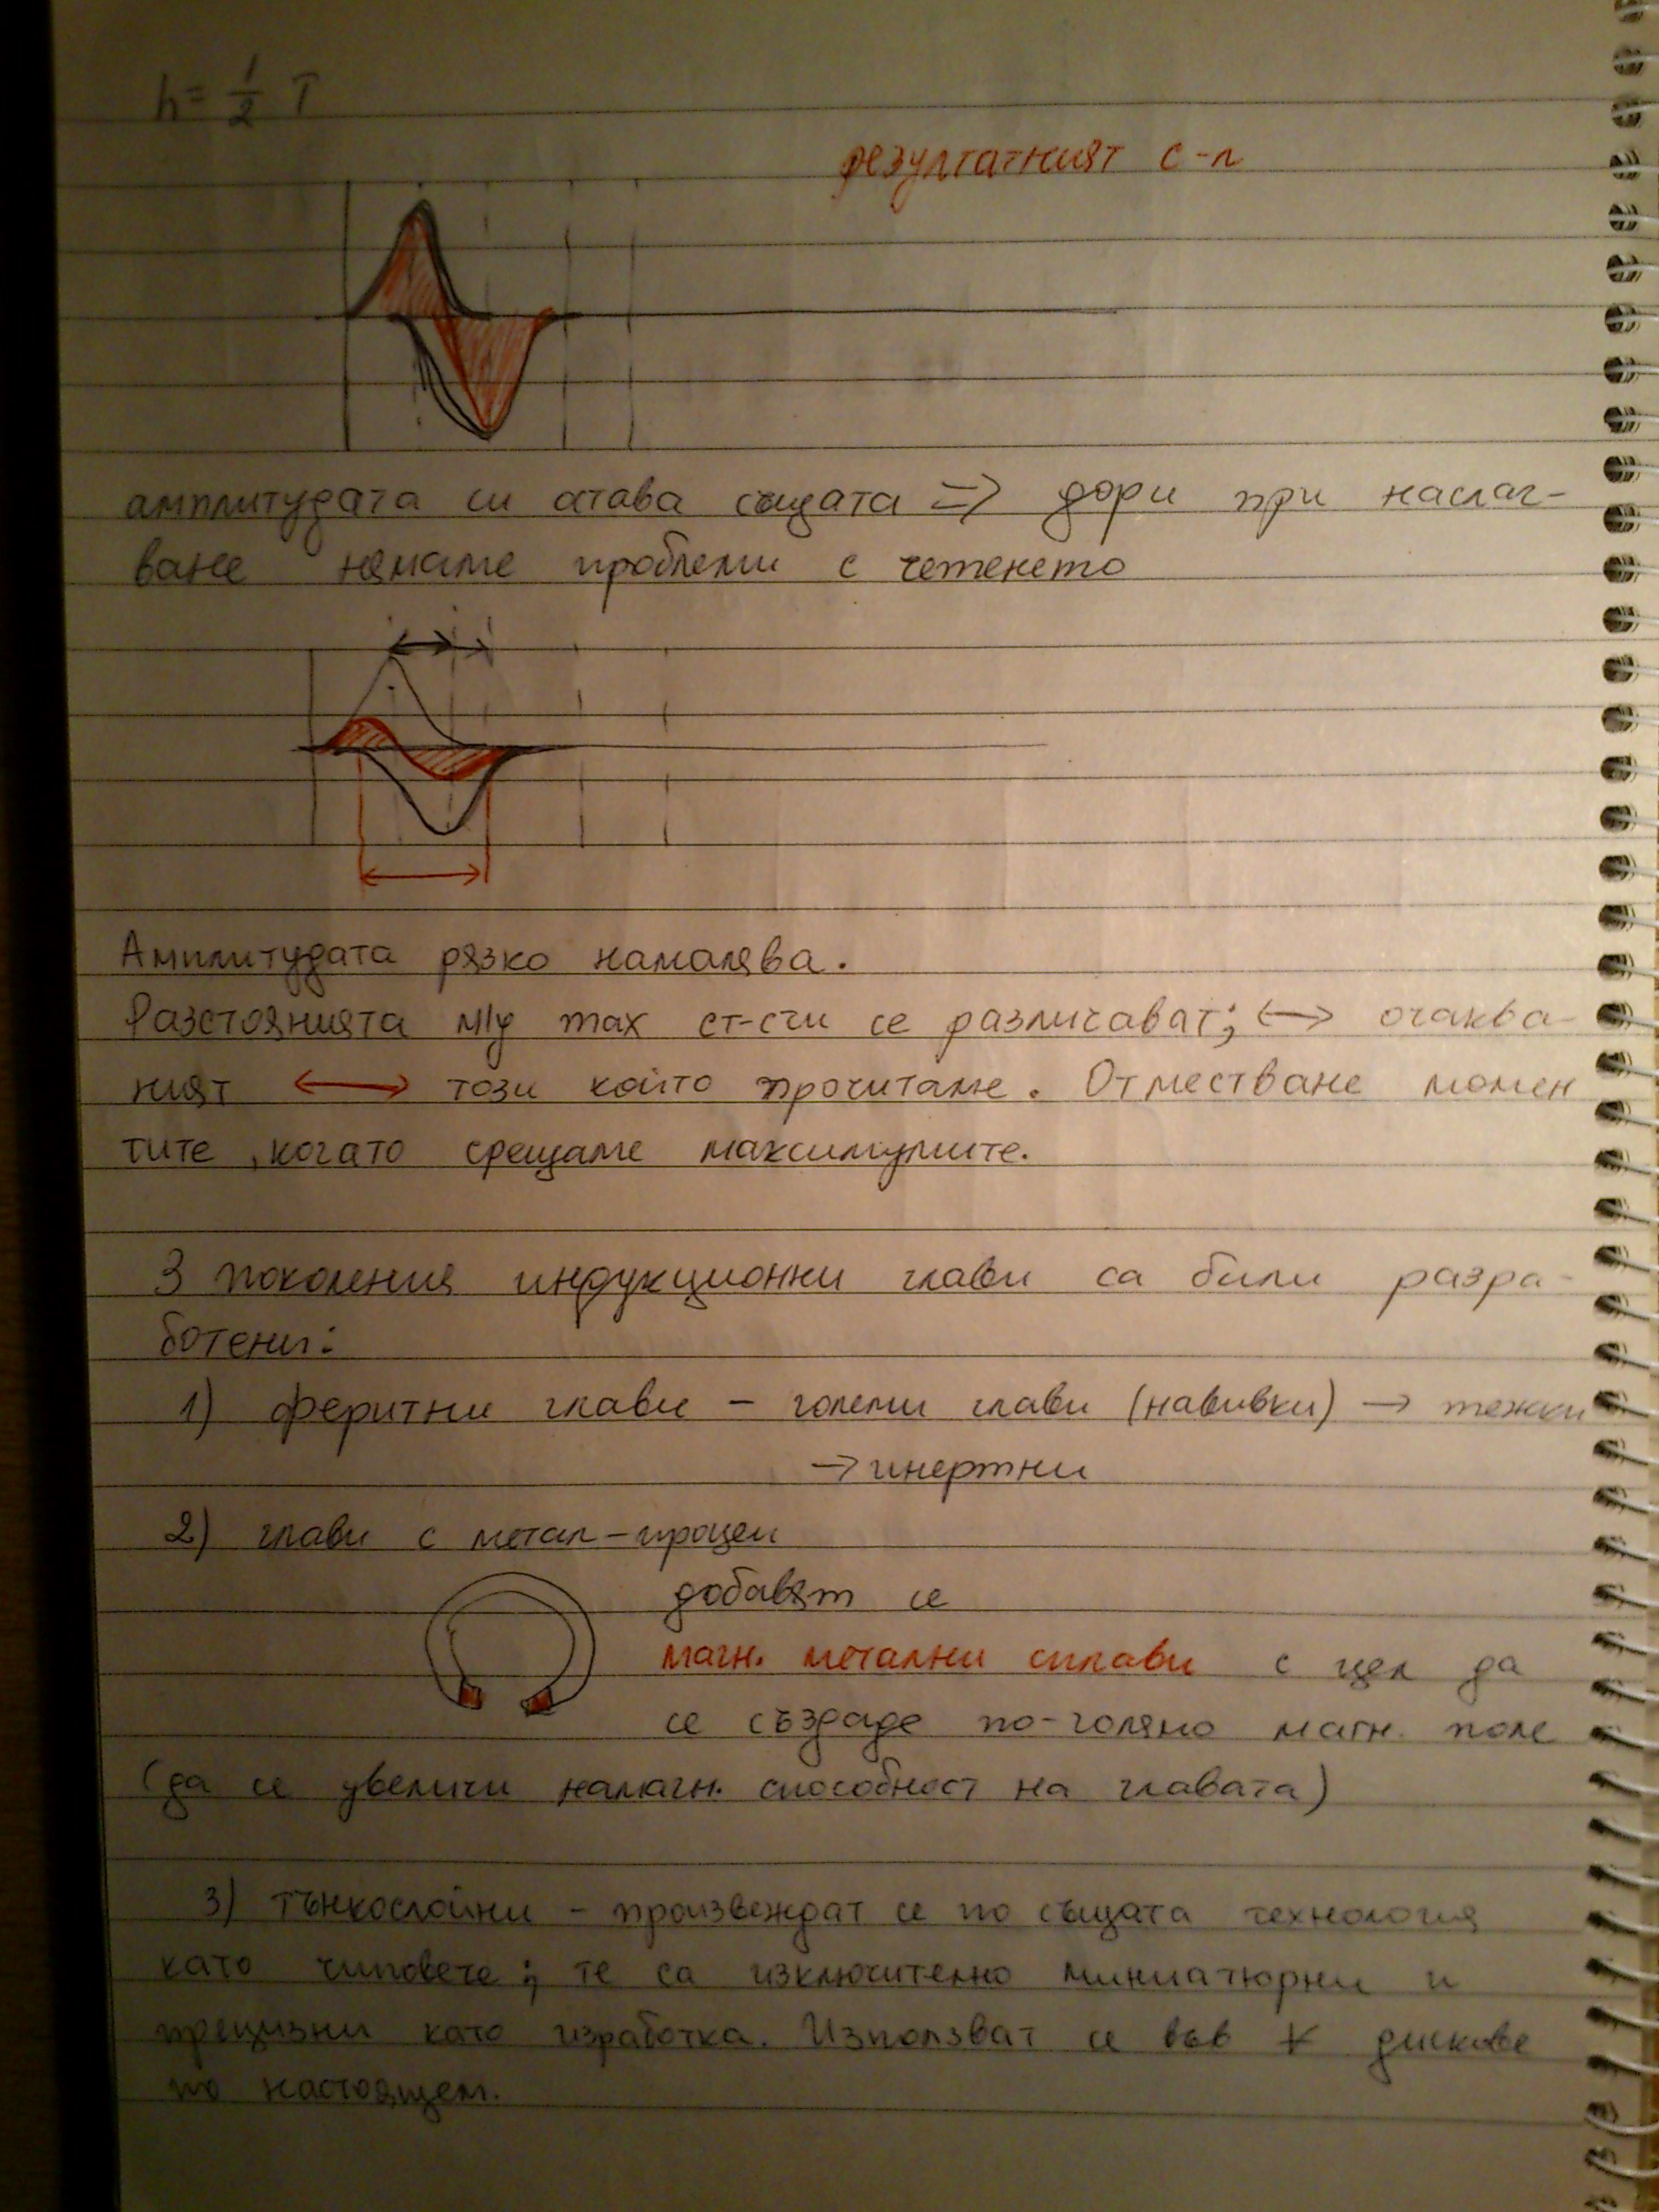 h = 1/2 T
резултатният с-л
амплитудата си остава същата => дори при наслаг-
ване нямаме проблеми с четенето
Амплитудата рязко намалява.
Разстоянията м/у max ст-сти се различават; <-> очаква-
ният <-> този който прочитаме. Отместване момен
тите, когато срещаме максимумите.
3 поколения индукционни глави са били разра-
ботени:
1) феритни глави - големи глави (навивки) -> тежки
-> инертни
2) глави с метал-процеп
добавят се
магн. метални сплави с цел да
се създаде по-голямо магн. поле
(да се увеличи намагн. способност на главата)
3) тънкослойни - произвеждат се по същата технология
като чиповете; те са изключително миниатюрни и
прецизни като изработка. Използват се във дискове
по настоящем.